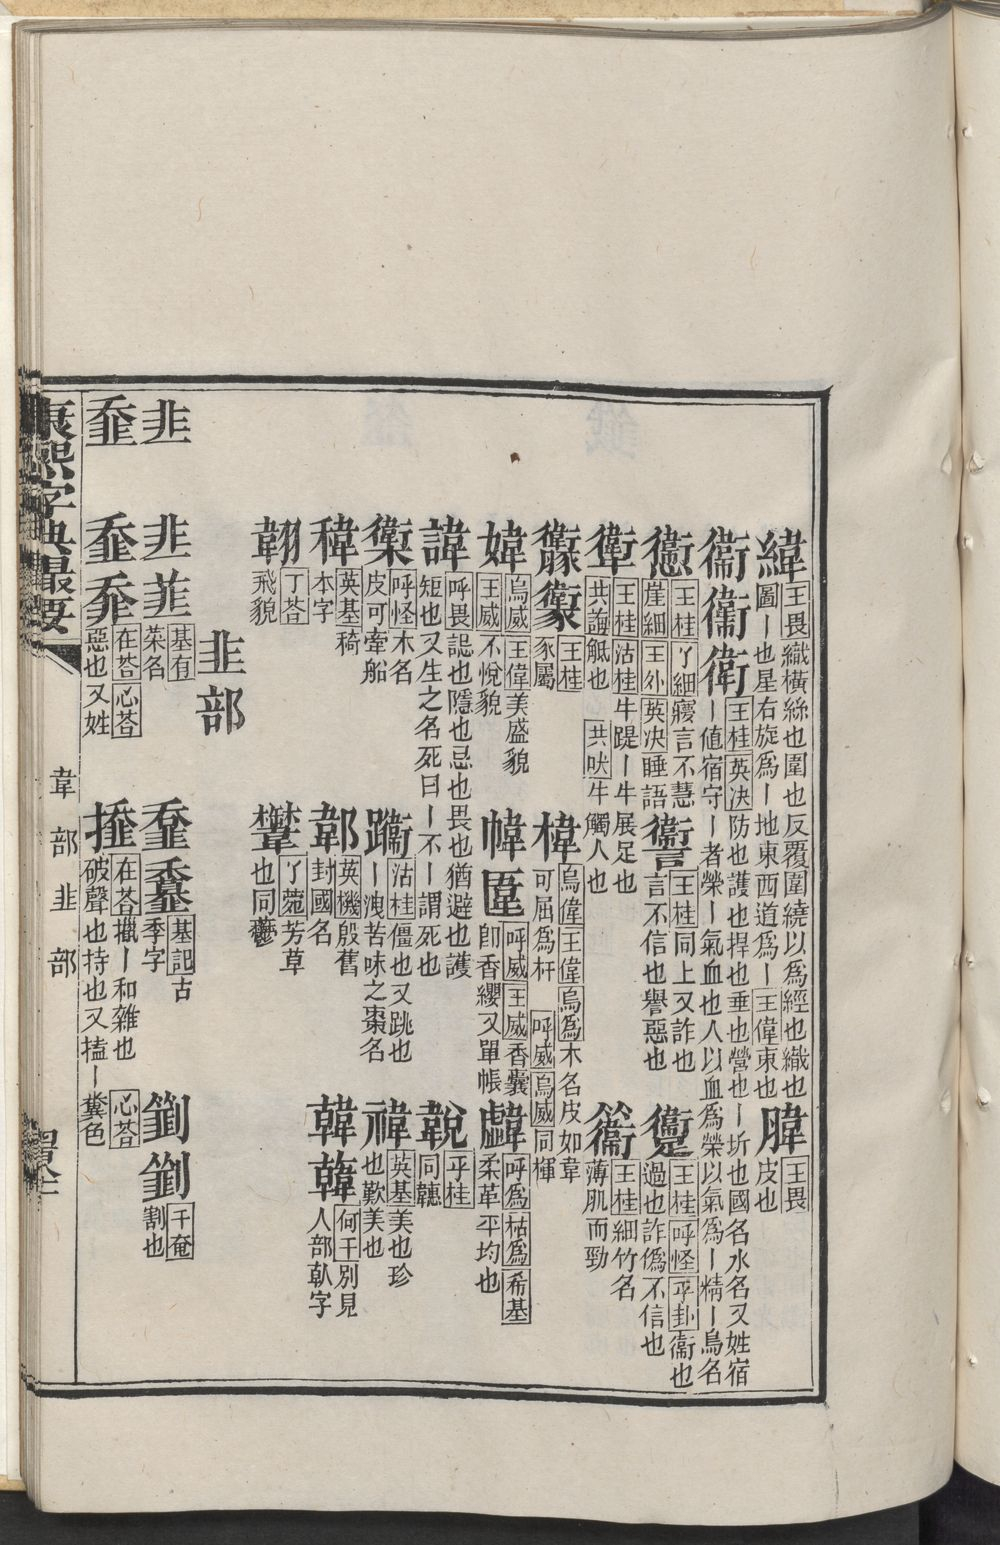 緯 王畏 織橫絲也圍也反覆圍繞以為經也織也圖丨也星右旋為丨地東西道為丨 王偉 束也 𦝛 王畏 皮也
衞 衛 王桂 英決 防也護也捍也垂也營也丨圻也國名水名又姓宿丨值宿守丨者榮丨氣血也人以血為榮以氣為丨精丨鳥名
王桂 了細 寱言不慧 崖細 王外 英決 睡語 讆 王桂 同上又詐也言不信也譽惡也 躗 王桂 呼怪 乎卦 衞也過也詐偽不信也
王桂 沽桂 牛踶丨牛展足也 共誨 觝也 共吠 牛觸人也 王桂 細竹名薄肌而勁
王桂 豕屬 椲 烏偉 王偉 烏為 木名皮如韋可屈為杅 呼威 烏威 同楎
媁 烏威 王偉 美盛貌 王威 不悅貌 幃 呼威 王威 香囊即香纓又單帳 呼為 枯為 希基 柔革平均也
諱 呼畏 誋也隱也忌也畏也猶避也護短也又生之名死曰丨不丨謂死也 乎桂 同韢
呼怪 木名皮可牽船 沽桂 僵也又跳也丨洩苦味之棗名 禕 英基 美也珍也歎美也
稦 英基 穚本字 郼 英機 殷舊封國名 韓 何干 別見人部倝字
丁荅 飛貌 丁菀 芳草也同鬱
韭部
韭 韭 韮 基有 菜名 基記 古季字 千奄 割也
在荅 心荅 惡也又姓 在荅 擸丨和雜也破聲也持也又搕丨糞色 心荅
康熙字典最要 韋部韭部